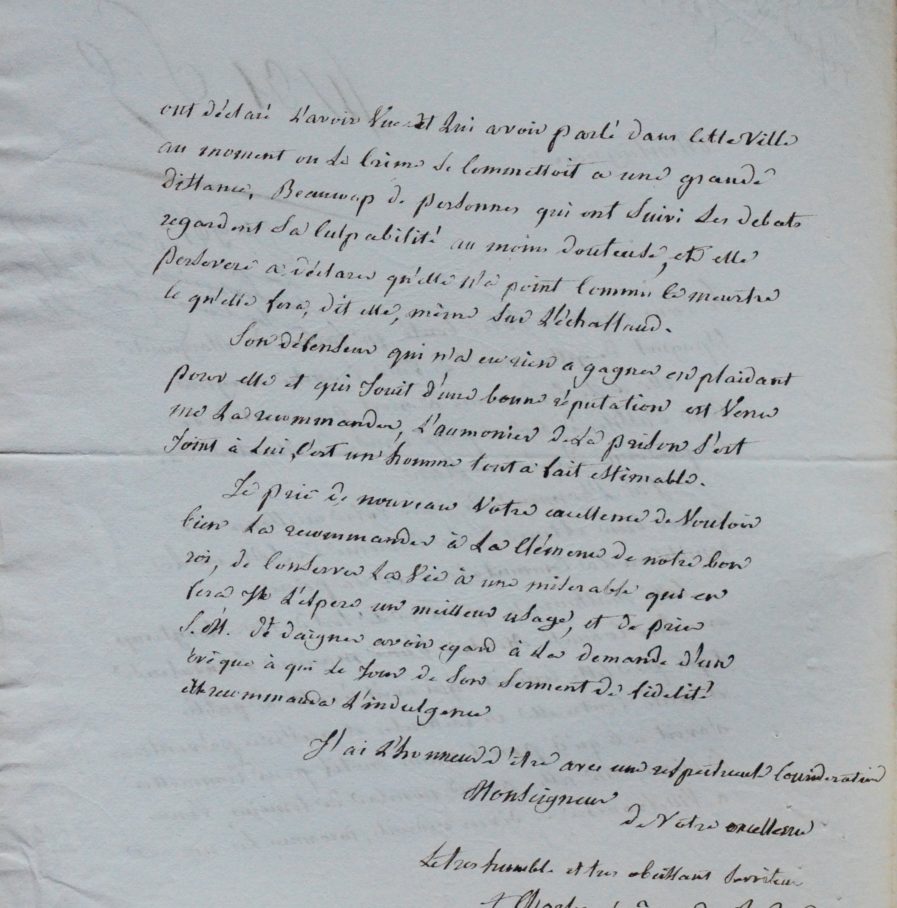 ont déclaré l'avoir Vue et lui avoir parlé dans cette Ville
au moment ou le Crime se Commettoit a une grande
distance, Beaucoup de personnes qui ont suivi les debats
regardent sa Culpabilité au moins douteuse, et elle
persevere a déclarer qu'elle n'a point Commis le meurtre
ce qu'elle fera, dit elle, même sur l'échaffaud.
Son défenseur qui n'a eu rien a gagner en plaidant
pour elle et qui Jouit d'une bonne réputation est Venu
me la recommander, l'aumonier de la prison s'est
Joint à lui, C'est un homme tout a fait estimable.
Je prie de nouveau Votre excellence de Vouloir
bien la recommander à la Clémence de notre bon
roi, de Conserver la Vie à une miserable qui en
fera je l'espere un meilleur usage, et de prier
S. M. de daigner avoir egard à la demande d'un
évêque à qui le Jour de son serment de fidelité
elle recommanda l'indulgence
J'ai l'honneur d'être avec une respectueuse Consideration
Monseigneur
de Votre excellence
Le tres humble et tres obéissant Serviteur